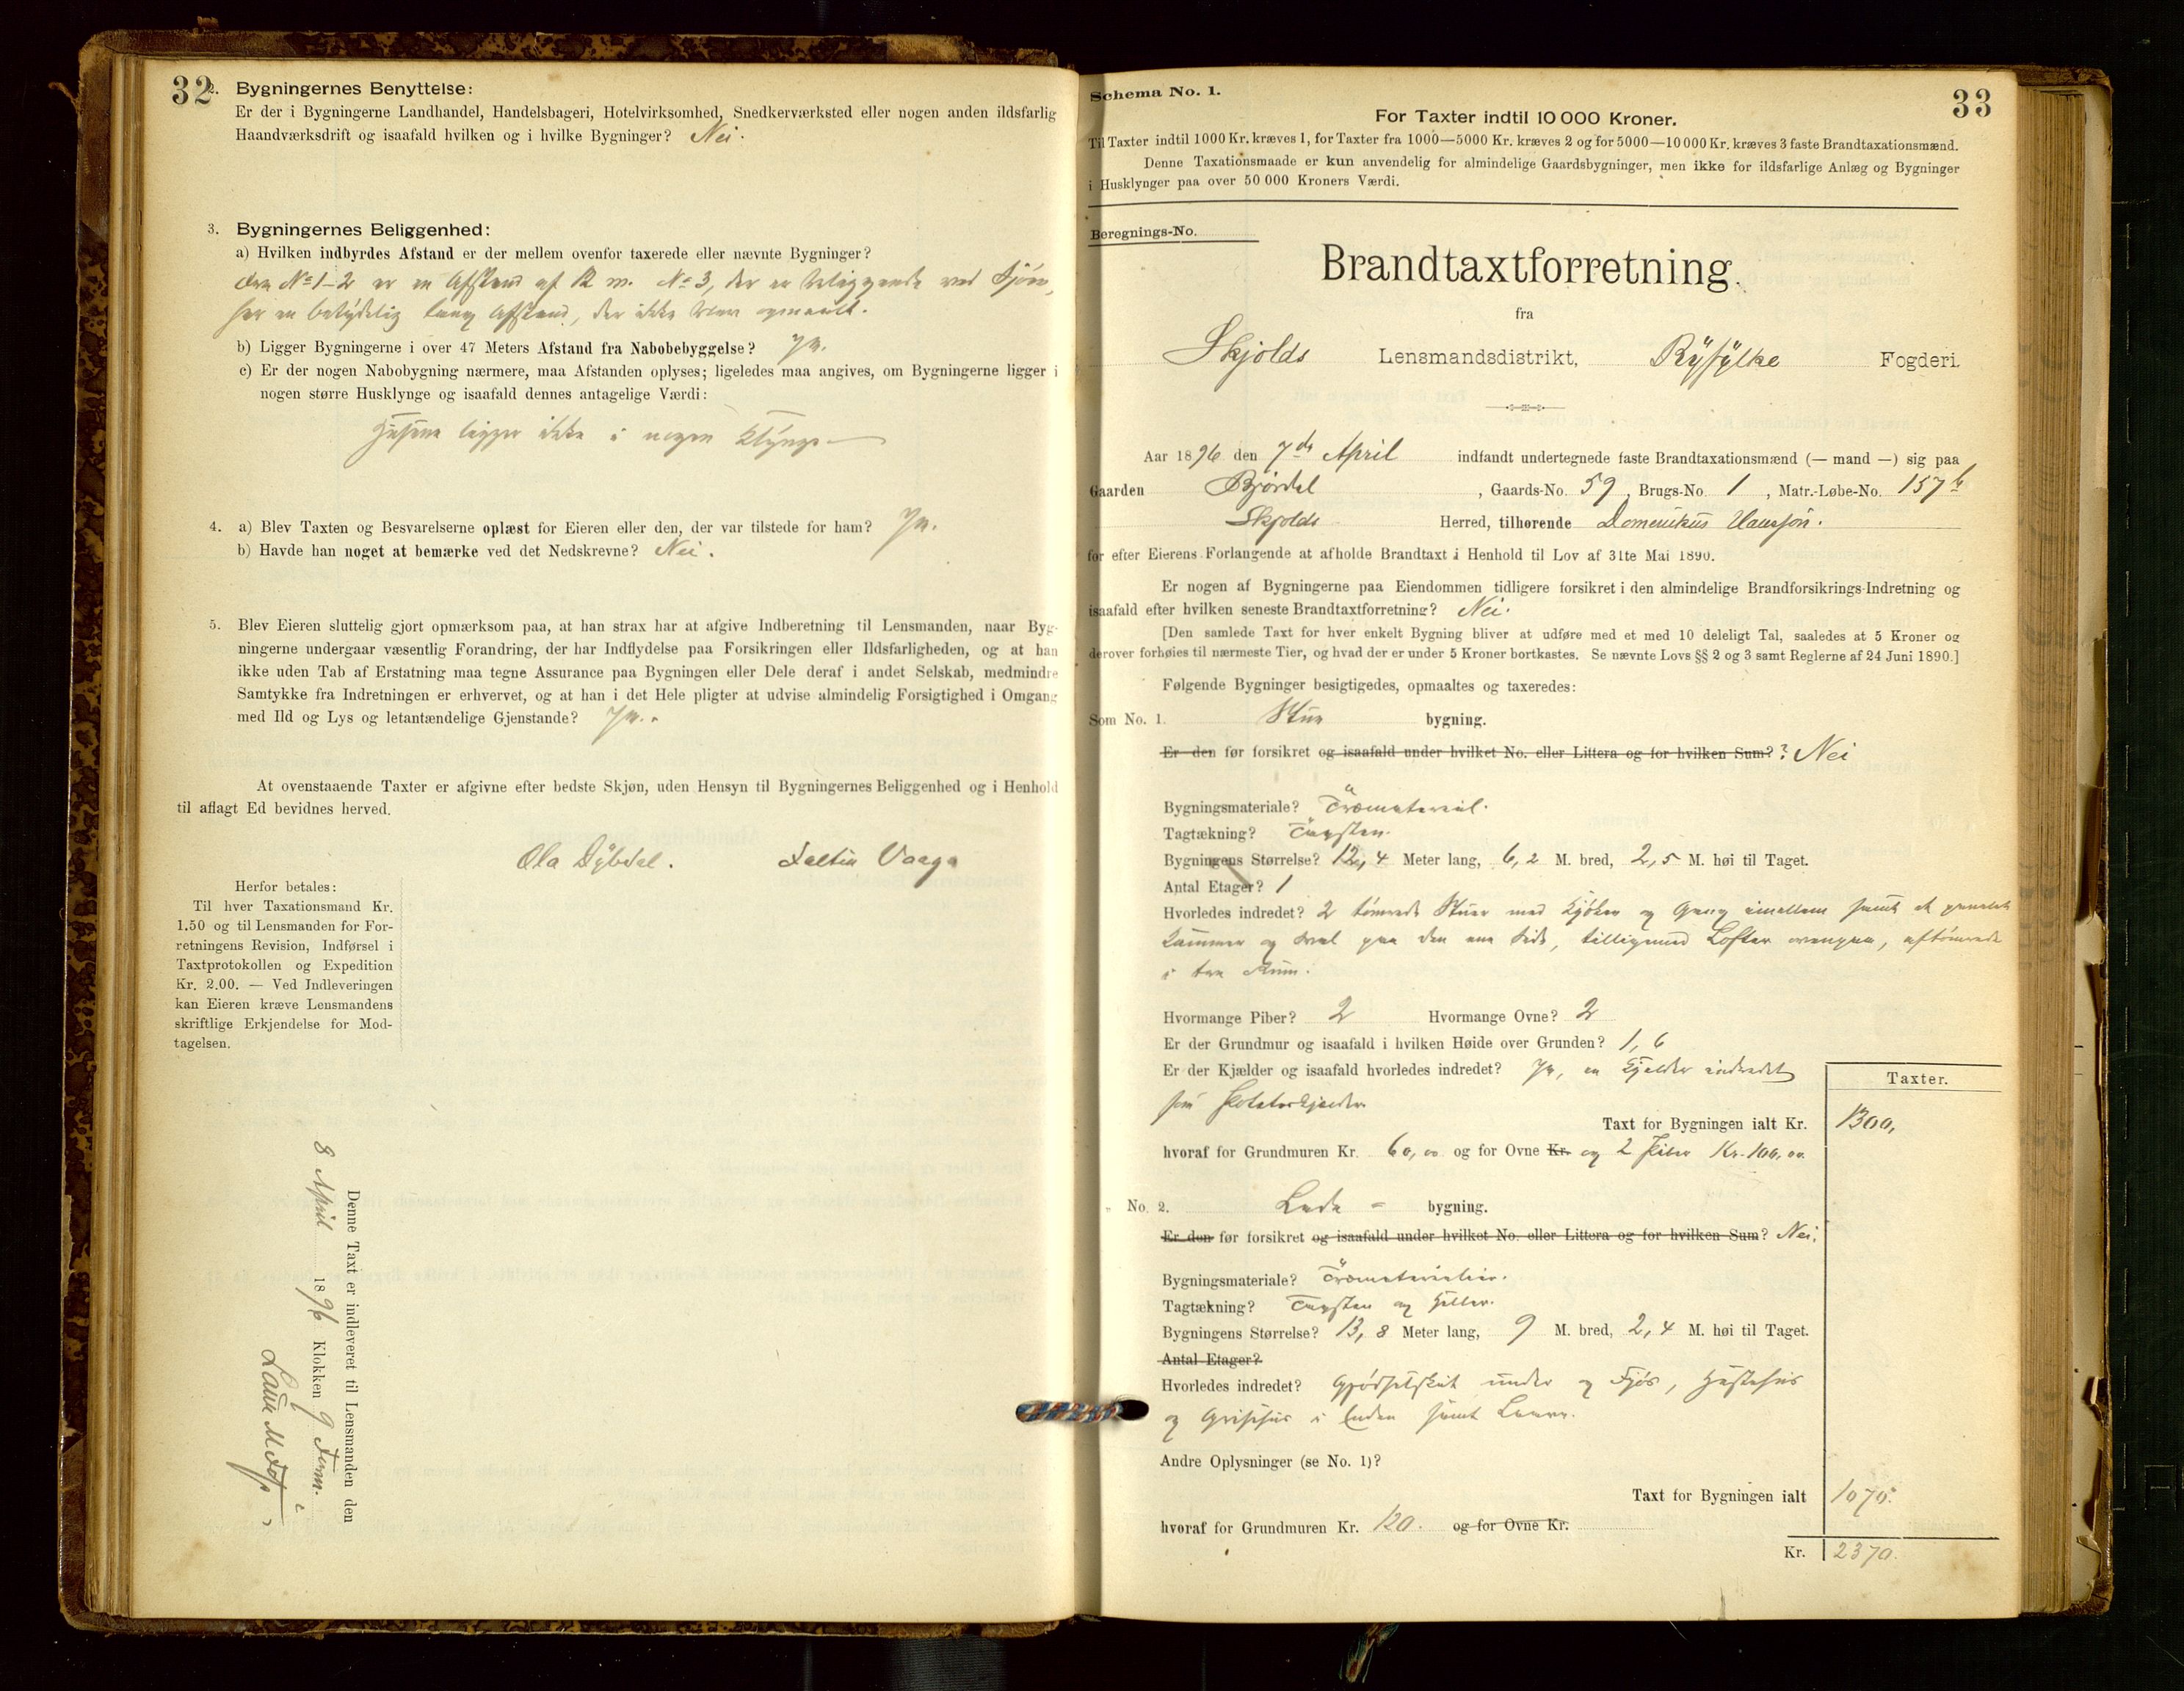 32
2. Bygningernes Benyttelse:
Er der i Bygningerne Landhandel, Handelsbageri, Hotelvirksomhed, Snedkerværksted eller nogen anden ildsfarlig
Haandværksdrift og isaafald hvilken og i hvilke Bygninger? Nei.
3. Bygningernes Beliggenhed:
a) Hvilken indbyrdes Afstand er der mellem ovenfor taxerede eller nævnte Bygninger?
No 1–2 er en Afstand af 12 m. No 3, der er beliggende ved Sjøen,
har en betydelig lang Afstand, der ikke blev opmaalt.
b) Ligger Bygningerne i over 47 Meters Afstand fra Nabobebyggelse? Ja.
c) Er der nogen Nabobygning nærmere, maa Afstanden oplyses; ligeledes maa angives, om Bygningerne ligger i
nogen større Husklynge og isaafald dennes antagelige Værdi:
Husene ligger ikke i nogen Klynge
4. a) Blev Taxten og Besvarelserne oplæst for Eieren eller den, der var tilstede for ham? Ja.
b) Havde han noget at bemærke ved det Nedskrevne? Nei.
5. Blev Eieren sluttelig gjort opmærksom paa, at han strax har at afgive Indberetning til Lensmanden, naar Byg-
ningerne undergaar væsentlig Forandring, der har Indflydelse paa Forsikringen eller Ildsfarligheden, og at han
ikke uden Tab af Erstatning maa tegne Assurance paa Bygningen eller Dele deraf i andet Selskab, medmindre
Samtykke fra Indretningen er erhvervet, og at han i det Hele pligter at udvise almindelig Forsigtighed i Omgang
med Ild og Lys og letantændelige Gjenstande? Ja.
At ovenstaaende Taxter er afgivne efter bedste Skjøn, uden Hensyn til Bygningernes Beliggenhed og i Henhold
til aflagt Ed bevidnes herved.
Ola Dybdal. Faltin Vaaga
Herfor betales:
Til hver Taxationsmand Kr.
1.50 og til Lensmanden for For-
retningens Revision, Indførsel i
Taxtprotokollen og Expedition
Kr. 2.00. — Ved Indleveringen
kan Eieren kræve Lensmandens
skriftlige Erkjendelse for Mod-
tagelsen.
Denne Taxt er indleveret til Lensmanden den
8 April 1896 Klokken 9 Form.
33
Schema No. 1.
For Taxter indtil 10 000 Kroner.
Til Taxter indtil 1000 Kr. kræves 1, for Taxter fra 1000—5000 Kr. kræves 2 og for 5000—10 000 Kr. kræves 3 faste Brandtaxationsmænd.
Denne Taxationsmaade er kun anvendelig for almindelige Gaardsbygninger, men ikke for ildsfarlige Anlæg og Bygninger
i Husklynger paa over 50 000 Kroners Værdi.
Beregnings-No.
Brandtaxtforretning.
fra
Skjolds Lensmandsdistrikt, Ryfylke Fogderi.
Aar 1896 den 7de April indfandt undertegnede faste Brandtaxationsmænd (— mand —) sig paa
Gaarden Bjørdal, Gaards-No. 59, Brugs-No. 1, Matr.-Løbe-No. 157b
Skjolds Herred, tilhørende Domenikus Hansson.
for efter Eierens Forlangende at afholde Brandtaxt i Henhold til Lov af 31te Mai 1890.
Er nogen af Bygningerne paa Eiendommen tidligere forsikret i den almindelige Brandforsikrings-Indretning og
isaafald efter hvilken seneste Brandtaxtforretning? Nei.
[Den samlede Taxt for hver enkelt Bygning bliver at udføre med et med 10 deleligt Tal, saaledes at 5 Kroner og
derover forhøies til nærmeste Tier, og hvad der er under 5 Kroner bortkastes. Se nævnte Lovs §§ 2 og 3 samt Reglerne af 24 Juni 1890.]
Følgende Bygninger besigtigedes, opmaaltes og taxeredes:
Som No. 1. Stue bygning.
Er den før forsikret og isaafald under hvilket No. eller Littera og for hvilken Sum? ? Nei
Bygningsmateriale? Træmaterial.
Tagtækning? Tagsten.
Bygningens Størrelse? 12,4 Meter lang, 6,2 M. bred, 2,5 M. høi til Taget.
Antal Etager? 1
Hvorledes indredet? 2 tømrede Stuer med Kjøken og Gang imellem samt et panelet
Kammer og Sval paa den ene Side, tilligemed Lofter ovenpaa, aftømrede
i tre Rum.
Hvormange Piber? 2 Hvormange Ovne? 2
Er der Grundmur og isaafald i hvilken Høide over Grunden? 1,6
Er der Kjælder og isaafald hvorledes indredet? Ja, en Kjelder indredet
som Potetkjelder.
Taxter.
Taxt for Bygningen ialt Kr. 1300,
hvoraf for Grundmuren Kr. 60,00 og for Ovne Kr. og 2 Piber Kr. 100,00
„ No. 2. Lade - bygning.
Er den før forsikret og isaafald under hvilket No. eller Littera og for hvilken Sum? Nei.
Bygningsmateriale? Træmaterialier.
Tagtækning? Tagsten og Heller.
Bygningens Størrelse? 13,8 Meter lang, 9 M. bred, 2,4 M. høi til Taget.
Antal Etager?
Hvorledes indredet? Gjødselskut under og Fjøs, Hestehus
og Grisehus i Enden samt Laave.
Andre Oplysninger (se No. 1)?
Taxt for Bygningen ialt 1070.
hvoraf for Grundmuren Kr. 120. og for Ovne Kr.
Kr. 2370.